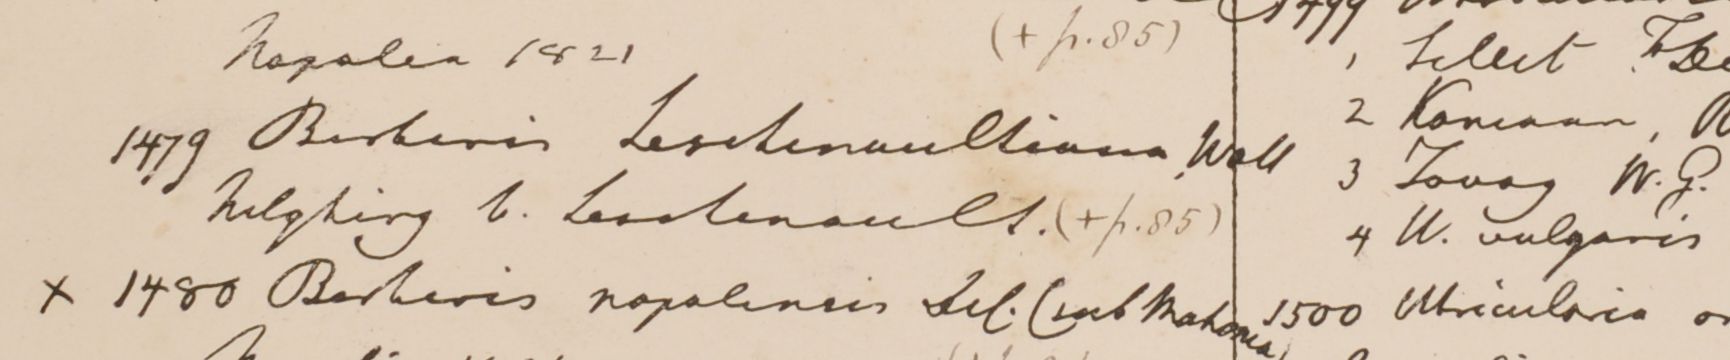 Napalia 1821 (+ p. 85)
1479 Berberis Leschenaultiana Wall
Nilghiry b. Leschenault. (+ p. 85)
x 1480 Berberis napalensis (sub Mahonia)
1499
1 Silhet
2
3 Tavoy W. G.
4 U. vulgaris
1500 Utricularia